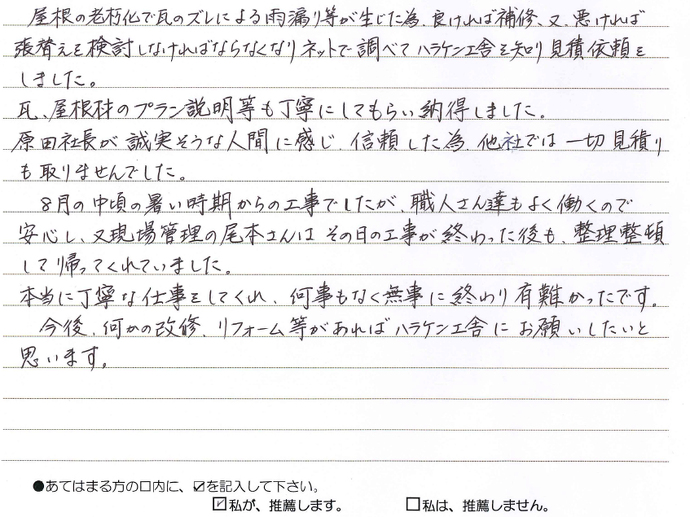 屋根の老朽化で瓦のズレによる雨漏り等が生じた為、良ければ補修、又、悪ければ
張替えを検討しなければならなくなりネットで調べてハラケン工舎を知り見積依頼を
しました。
瓦、屋根材のプラン説明等も丁寧にしてもらい納得しました。
原田社長が誠実そうな人間に感じ、信頼した為、他社では一切見積り
も取りませんでした。
8月の中頃の暑い時期からの工事でしたが、職人さん達もよく働くので
安心し、又現場管理の尾本さんはその日の工事が終わった後も、整理整頓
して帰ってくれていました。
本当に丁寧な仕事をしてくれ、何事もなく無事に終わり有難かったです。
今後、何かの改修、リフォーム等があればハラケン工舎にお願いしたいと
思います。
●あてはまる方の口内に、☑を記入して下さい。
☑私が、推薦します。 □私は、推薦しません。